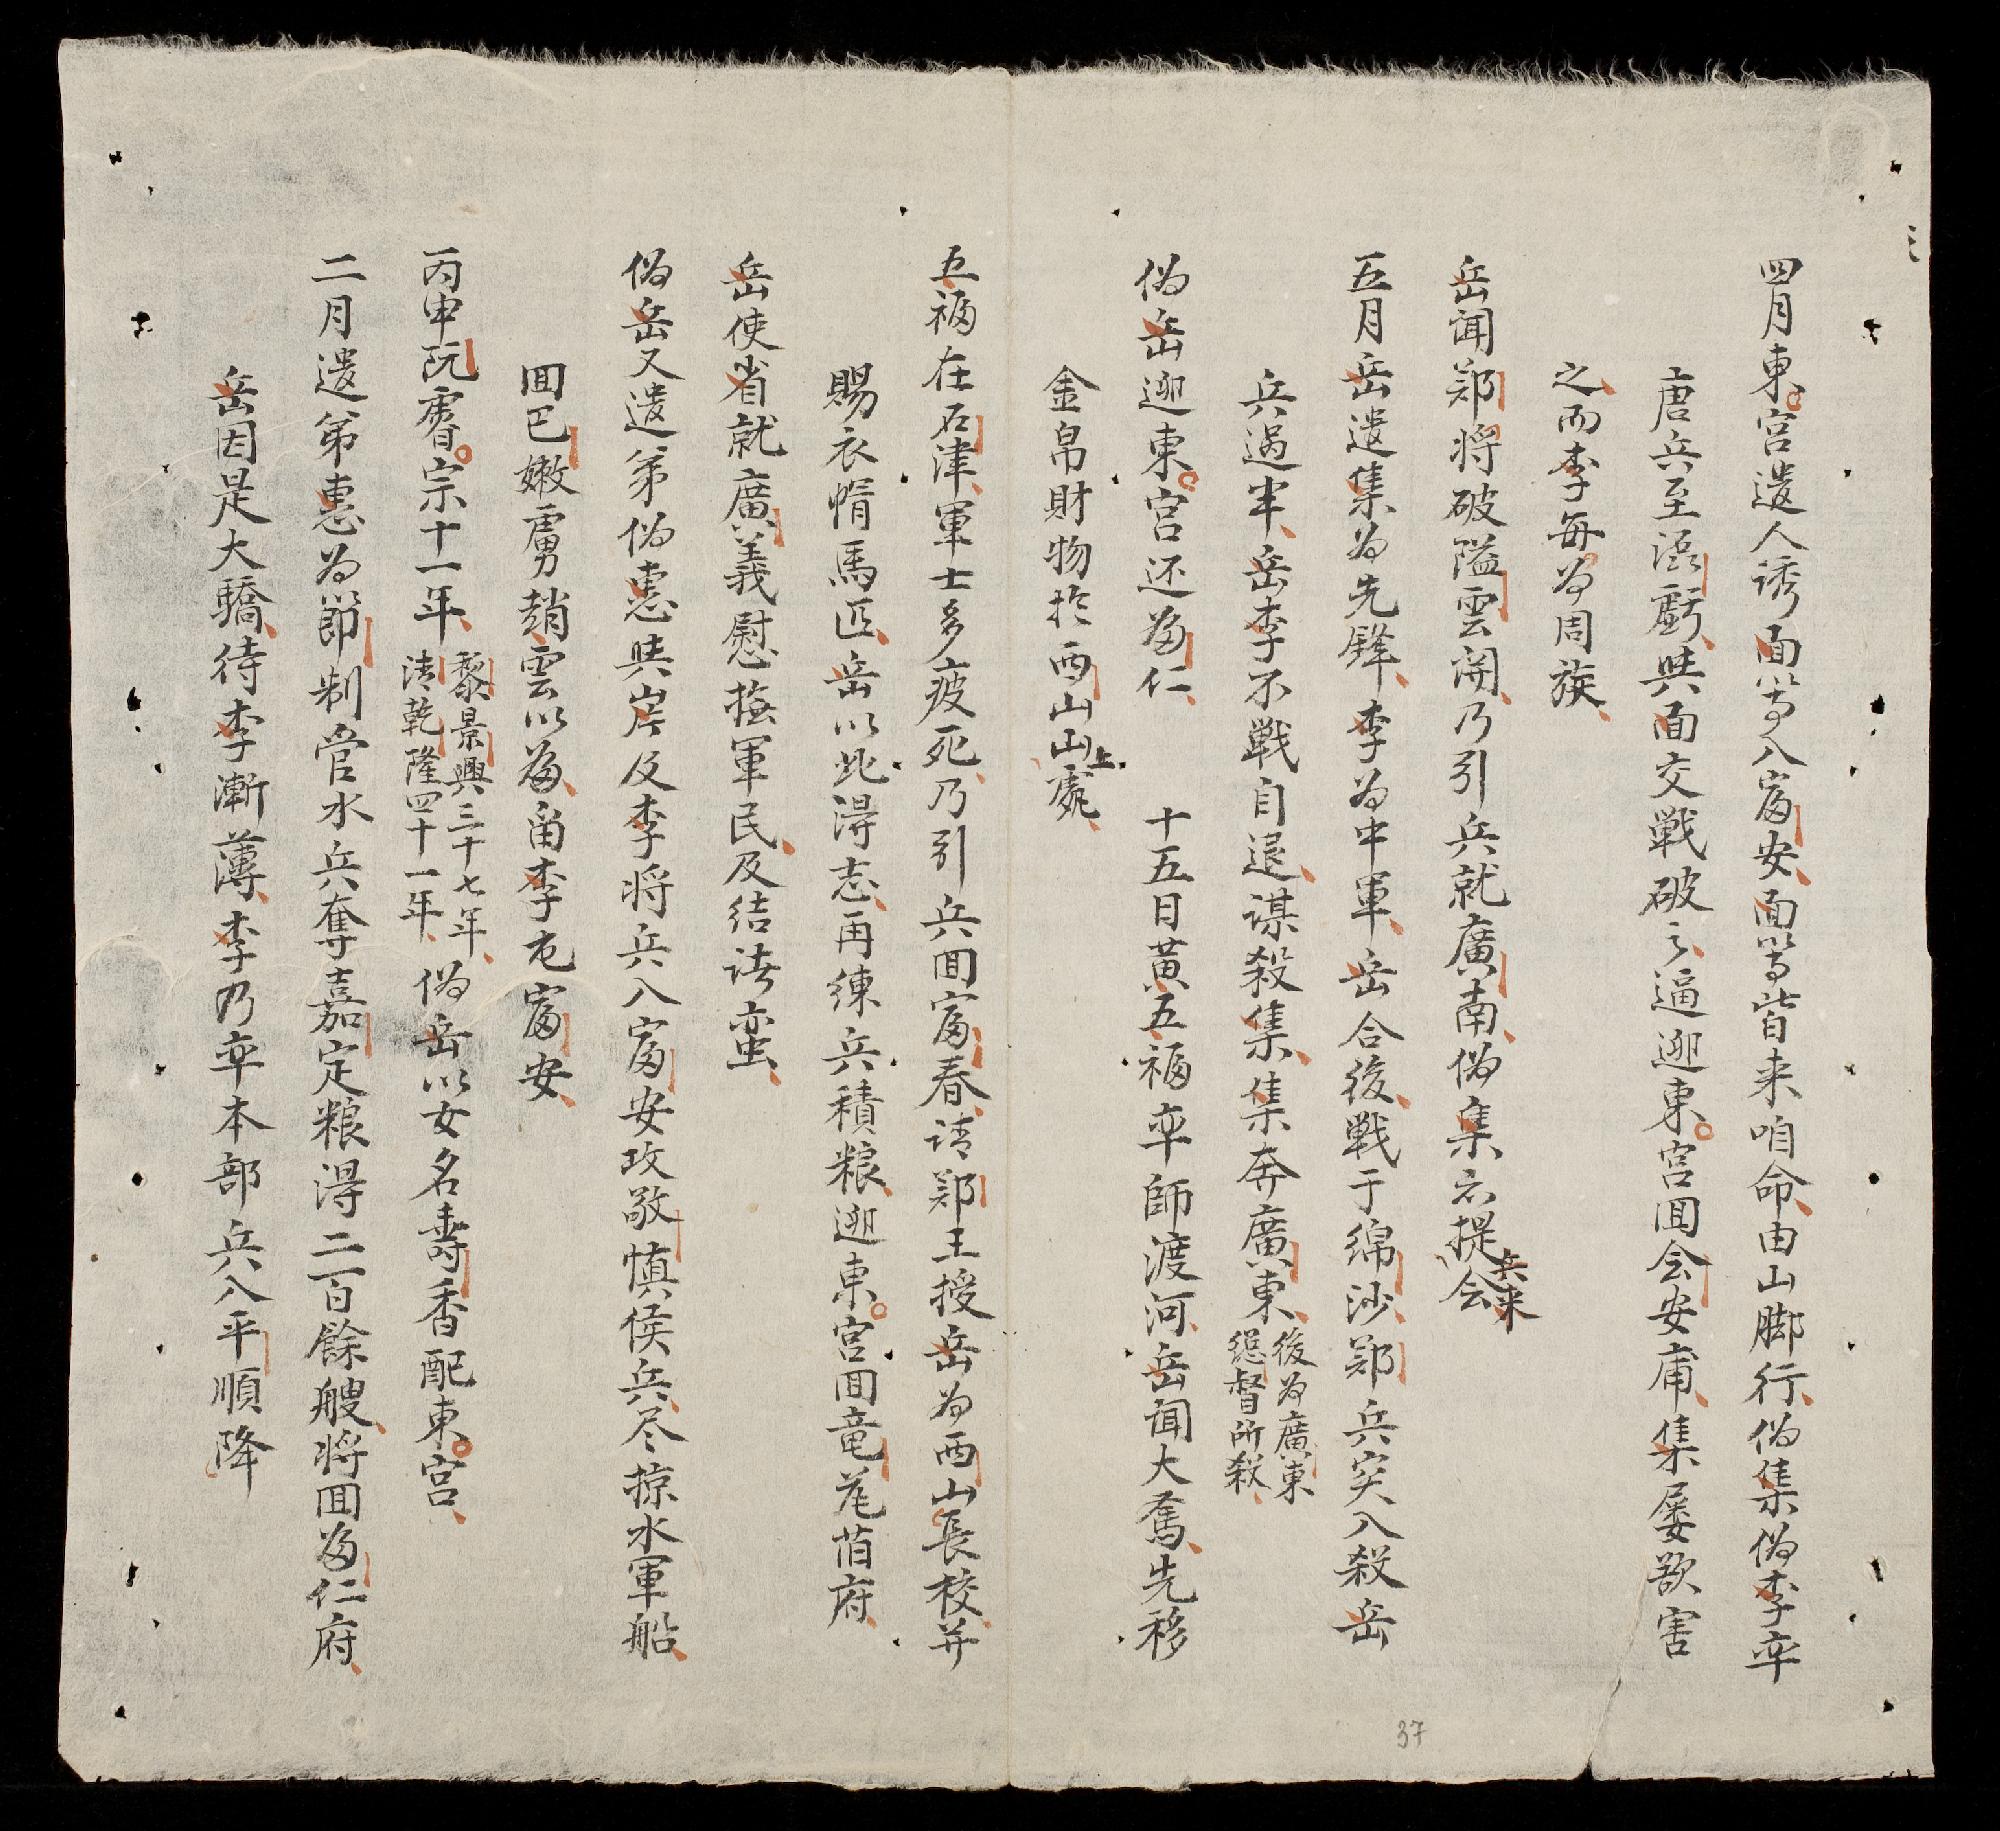 四月東宮遣人誘面等入富安面等皆来咱命由山脚行偽集偽李率
唐兵至渃虧與面交戦破之逼迎東宮囬会安庯集屡欲害
之而李每為周旋
岳闻鄭将破隘雲闲乃引兵就廣南偽集亦提兵来会
五月岳遣集為先鋒李為中軍岳合後戦于綿沙鄭兵突入殺岳
兵過半岳李不戦自退謀殺集集奔廣東後為廣東
總督所殺
偽岳迎東宮还為仁　十五日黄五福率師渡河岳闻大奮先移
金帛財物於西山山上處
五福在石津軍士多疲死乃引兵囬富春请鄭王授岳為西山長校并
賜衣幘馬匹岳以此淂志再練兵積粮迎東宮囬竜 府
岳使省就廣義慰撫軍民及结诸蛮
偽岳又遣弟偽惠與岸及李将兵入富安攻敬慎侯兵尽掠水軍船
囬巴嫩虜趙雲以為留李屯富安
丙申阮睿宗十一年黎景興三十七年
清乾隆四十一年偽岳以女名壽香配東宮
二月遣弟惠為節制官水兵奪嘉定粮淂二百餘艘将囬為仁府
岳因是大驕待李漸薄李乃率本部兵入平順降
37